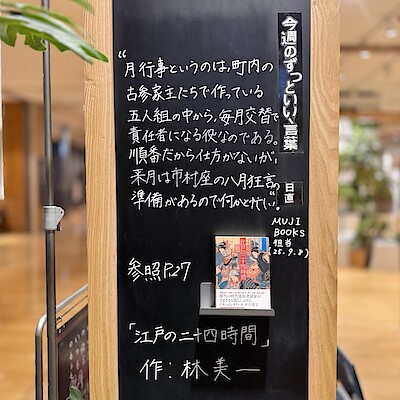 今週のずっといい言葉
日直
MUJI
BOOKS
担当
(25.9.8)
“月行事というのは,町内の
古参家主たちで作っている
五人組の中から,毎月交替で
責任者になる役なのである。
順番だから仕方がないが,
来月は市村座の八月狂言の
準備があるので何かと忙しい”。
参照P.27
「江戸の二十四時間」
作:林美一